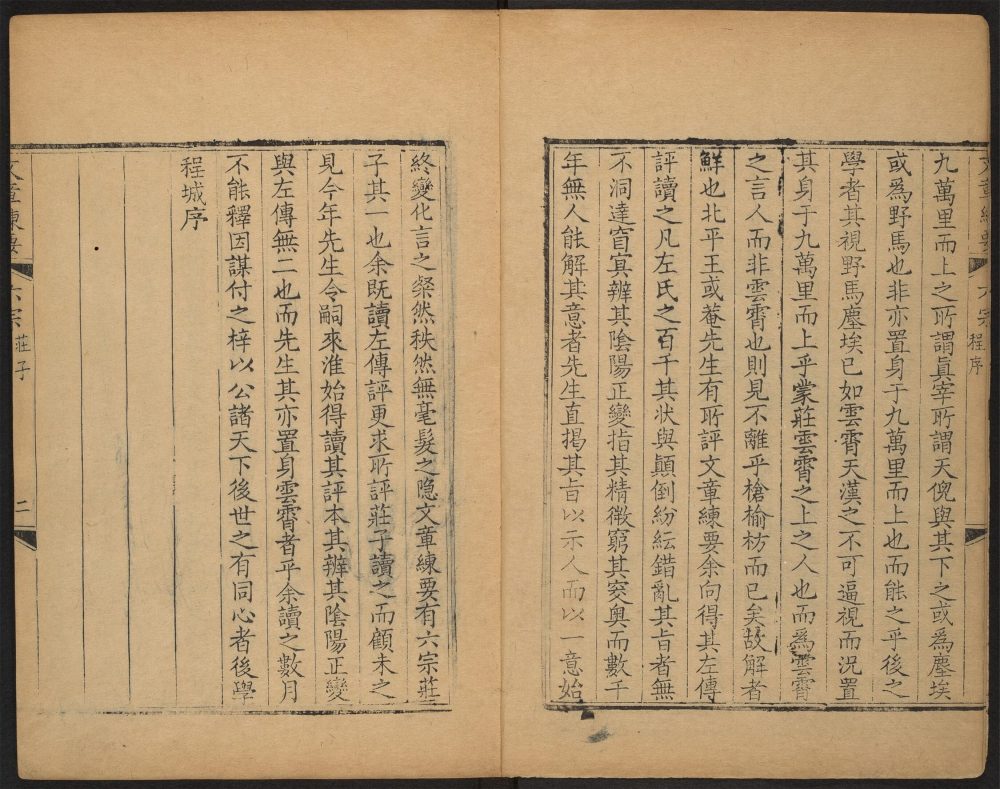 文章練要
六宗
程序
九萬里而上之所謂真宰所謂天倪與其下之或為塵埃
或為野馬也非亦置身于九萬里而上也而能之乎後之
學者其視野馬塵埃已如雲霄天漢之不可逼視而況置
其身于九萬里而上乎蒙莊雲霄之上之人也而為雲霄
之言人而非雲霄也則見不離乎槍榆枋而已矣故解者
鮮也北平王或菴先生有所評文章練要余向得其左傳
評讀之凡左氏之百千其狀與顛倒紛紜錯亂其旨者無
不洞達窅冥辨其陰陽正變指其精微窮其突奧而數千
年無人能解其意者先生直揭其旨以示人而以一意始
終變化言之粲然秩然無毫髮之隐文章練要有六宗莊
子其一也余既讀左傳評更求所評莊子讀之而顧未之
見今年先生令嗣來淮始得讀其評本其辨其陰陽正變
與左傳無二也而先生其亦置身雲霄者乎余讀之數月
不能釋因謀付之梓以公諸天下後世之有同心者後學
程城序
文章練要
六宗
莊子
二